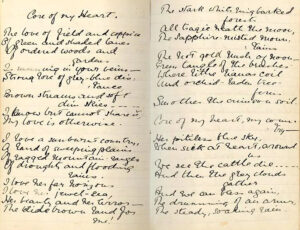 Core of my Heart.
The love of field and coppice
Of green and shaded lanes
Of ordered woods and
gardens
Is running in your veins
Strong love of grey-blue dis-
tance
Brown streams and soft
dim skies
I know but cannot share it
My love is otherwise
I love a sunburnt country,
A land of sweeping plains
Of ragged mountain ranges
Of drought and flooding
rains
I love her far horizons
I love her jewel-sea
Her beauty and her terror
The wide brown land for
me!
The stark white ring-barked
forest
All tragic 'neath the moon,
The sapphire misted mountains
The hot gold hush of noon
Green tangle of the brushes
Where lithe lianas coil
And orchids
fern
the crimson soil
Core of my heart, my country
Her pitiless blue sky,
When sick at heart, around
us
We see the cattle die
And then the grey clouds
gather
And we can bless again
The drumming of an army
The steady, soaking rain